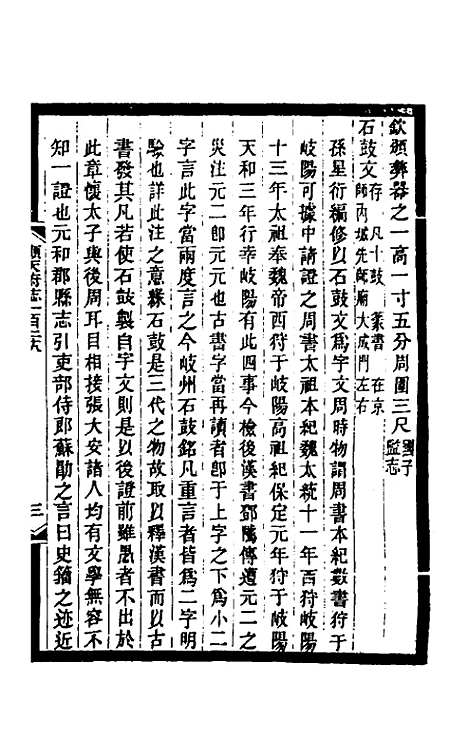 欽頒彝器之一高一寸五分周圍三尺國子監志
石鼓文存 凡十鼓 篆書 在京師內城先師廟大成門左右
孫星衍編修以石鼓文爲宇文周時物謂周書本紀數書狩于
岐陽可據中請證之周書太祖本紀魏大統十一年西狩岐陽
十三年太祖奉魏帝西狩于岐陽高祖紀保定元年狩于岐陽
天和三年行幸岐陽有此四事今檢後漢書鄧騭傳遭元二之
災注元二卽元元也古書字當再讀者卽于上字之下爲小二
字言此字當兩度言之今岐州石鼓銘凡重言者皆爲二字明
驗也詳此注之意緣石鼓是三代之物故取以釋漢書而以古
書發其凡若使石鼓製自宇文則是以後證前雖愚者不出於
此章懷太子與後周耳目相接張大安諸人均有文學無容不
知一證也元和郡縣志引吏部侍郎蘇勖之言曰史籀之迹近
順天府志一百二十八
三